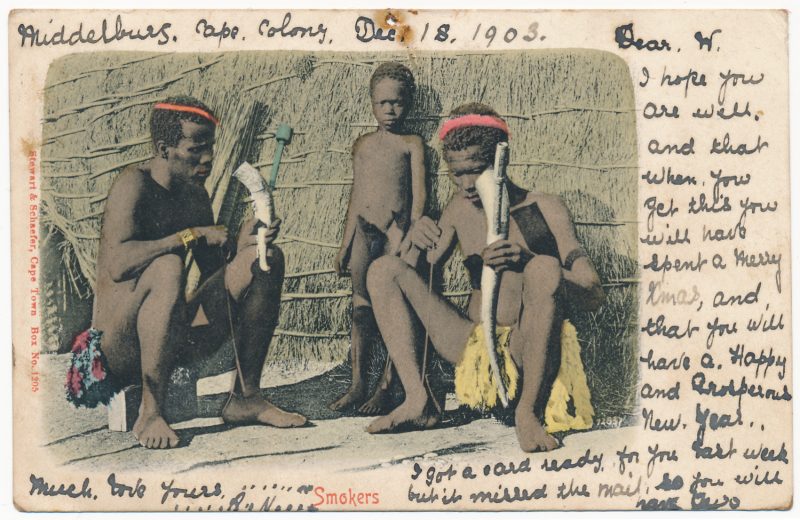 Middelburg. Cape. Colony. Dec. 18. 1903.
Dear. W.
I hope you
are well.
and that
when. you
get this you
will have
spent a Merry
Xmas, and,
that you will
have a. Happy
and Prosperous
New. Year..
I got a card ready. for you last week
but it missed the mail. so you will
have two
Much. love yours.
Smokers
Stewart & Schaefer, Cape Town Box No. 1205